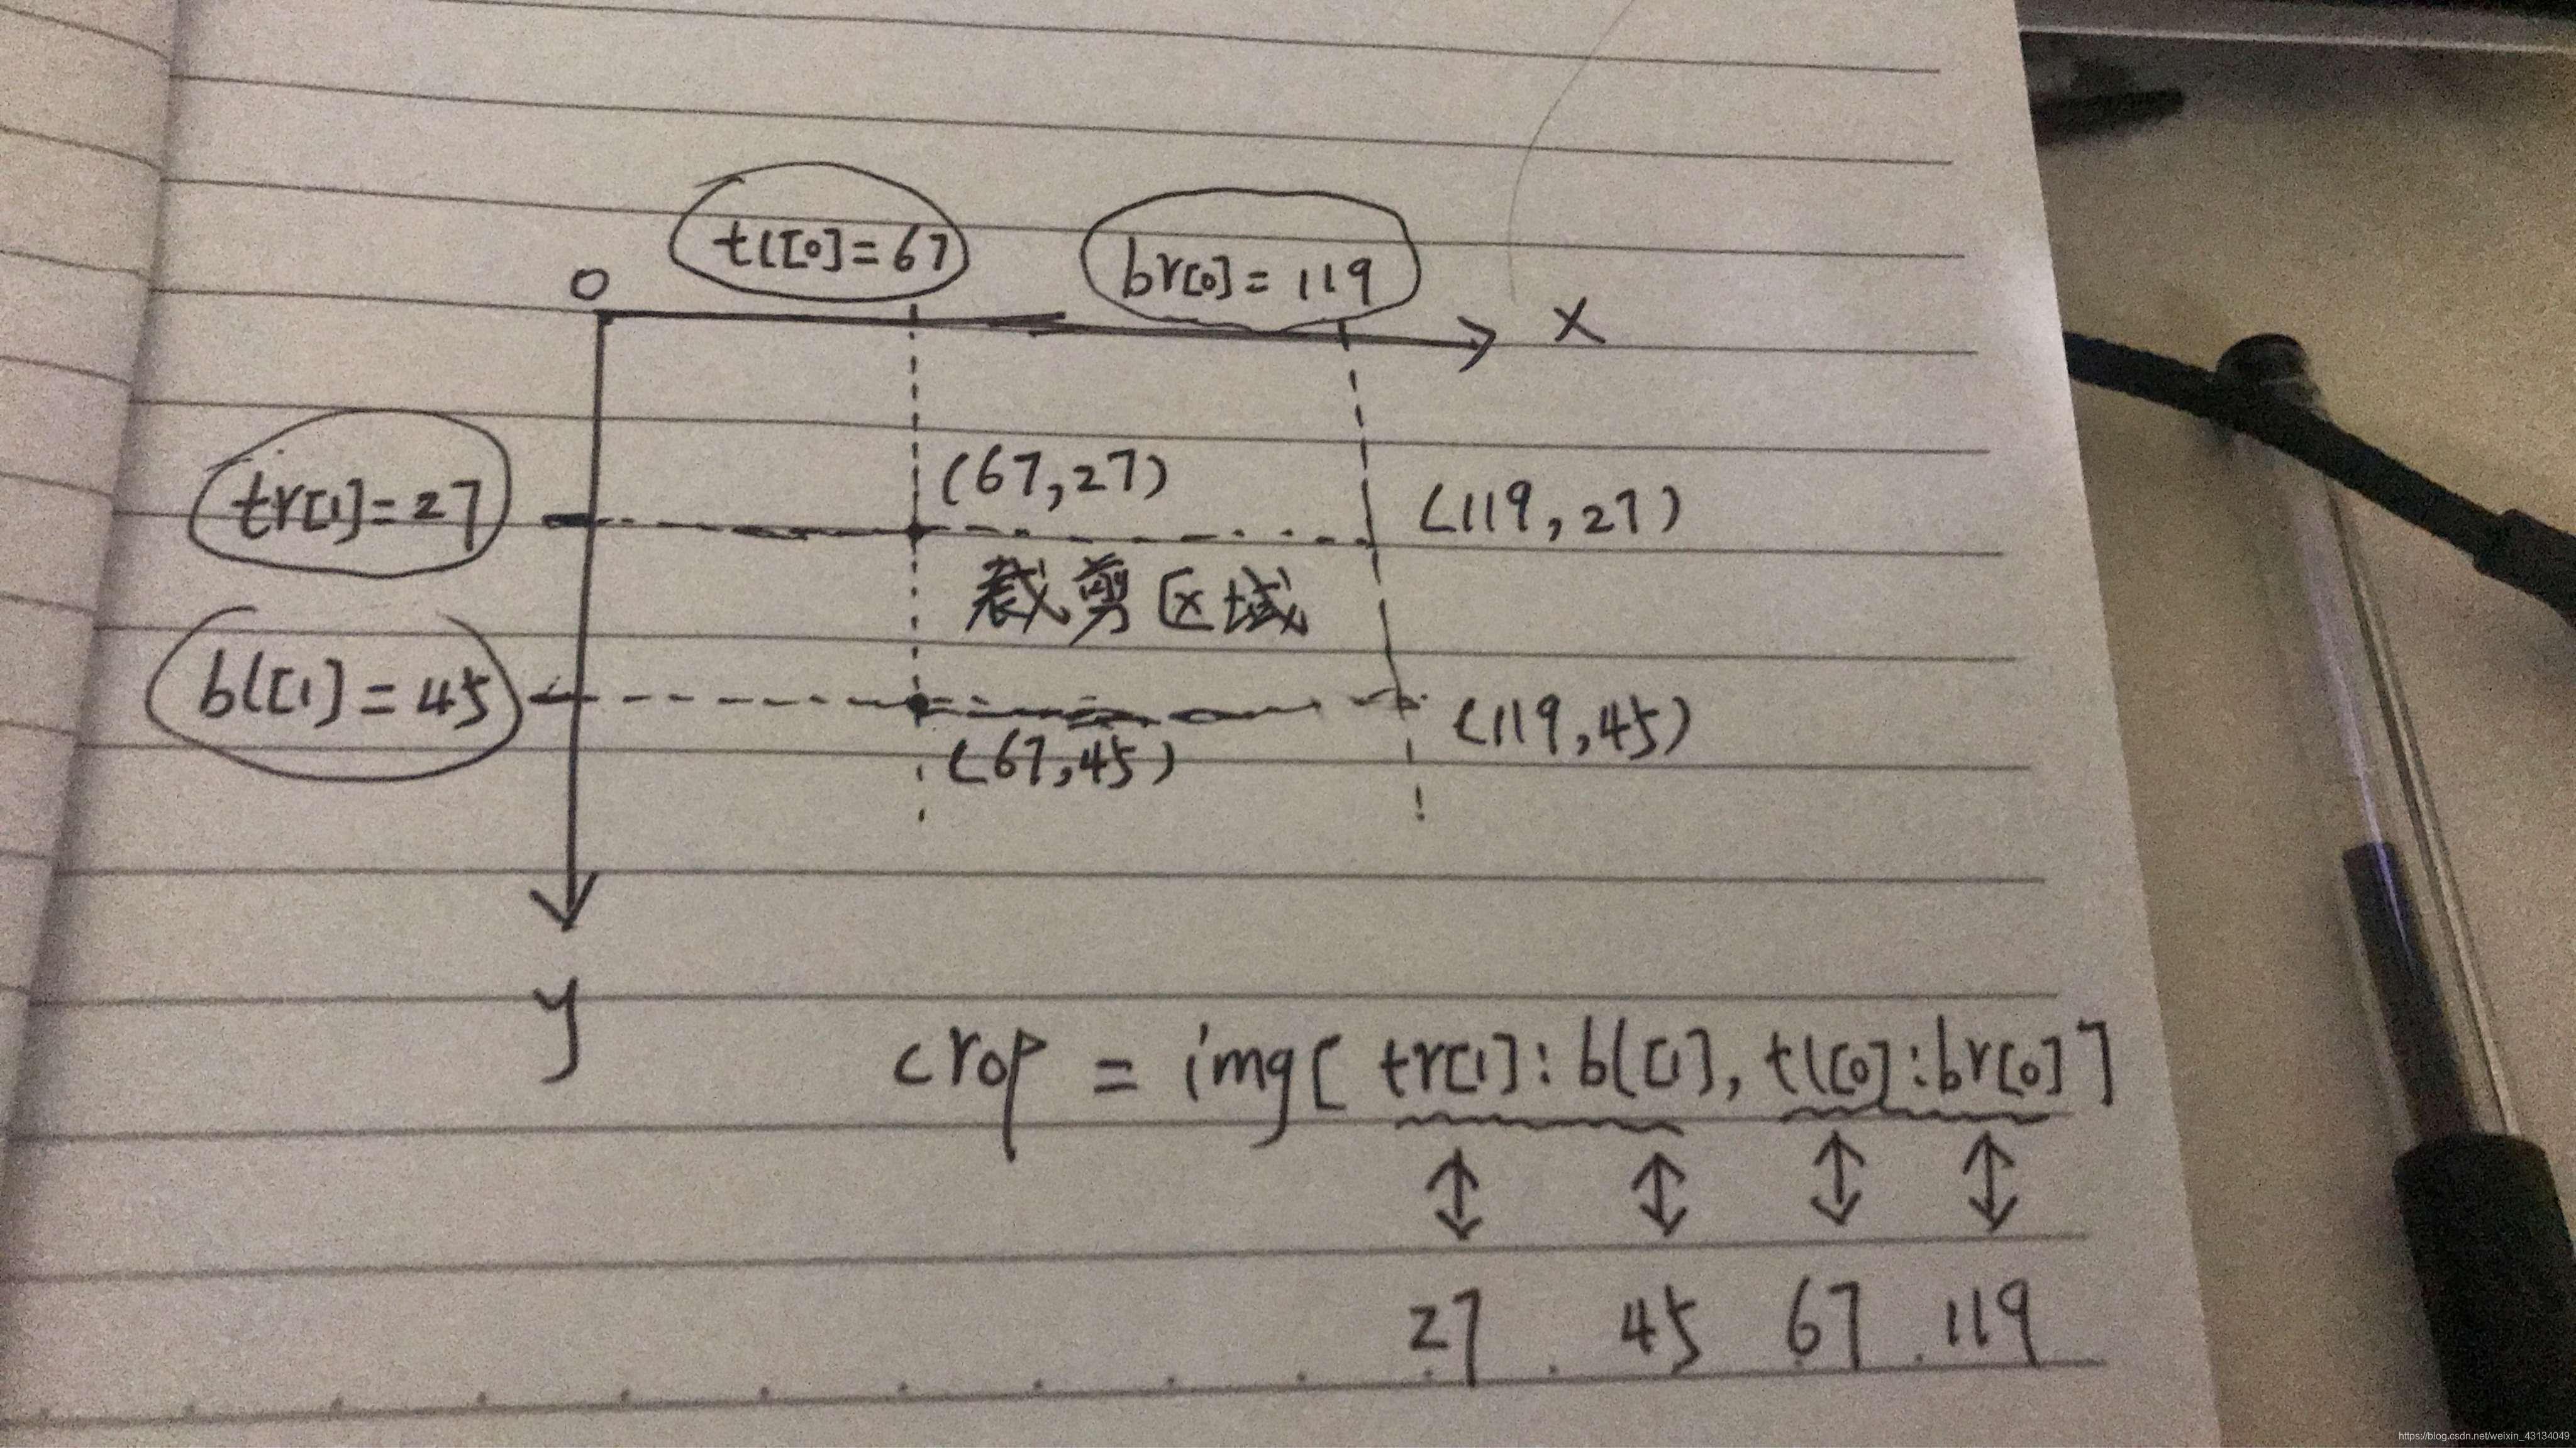 tl[0]=67
br[0]=119
0
X
tr[1]=27
(67,27)
(119,27)
裁剪区域
bl[1]=45
(67,45)
(119,45)
y
crop = img[tr[1]:bl[1],tl[0]:br[0]]
27 45 67 119
https://blog.csdn.net/weixin_43134049